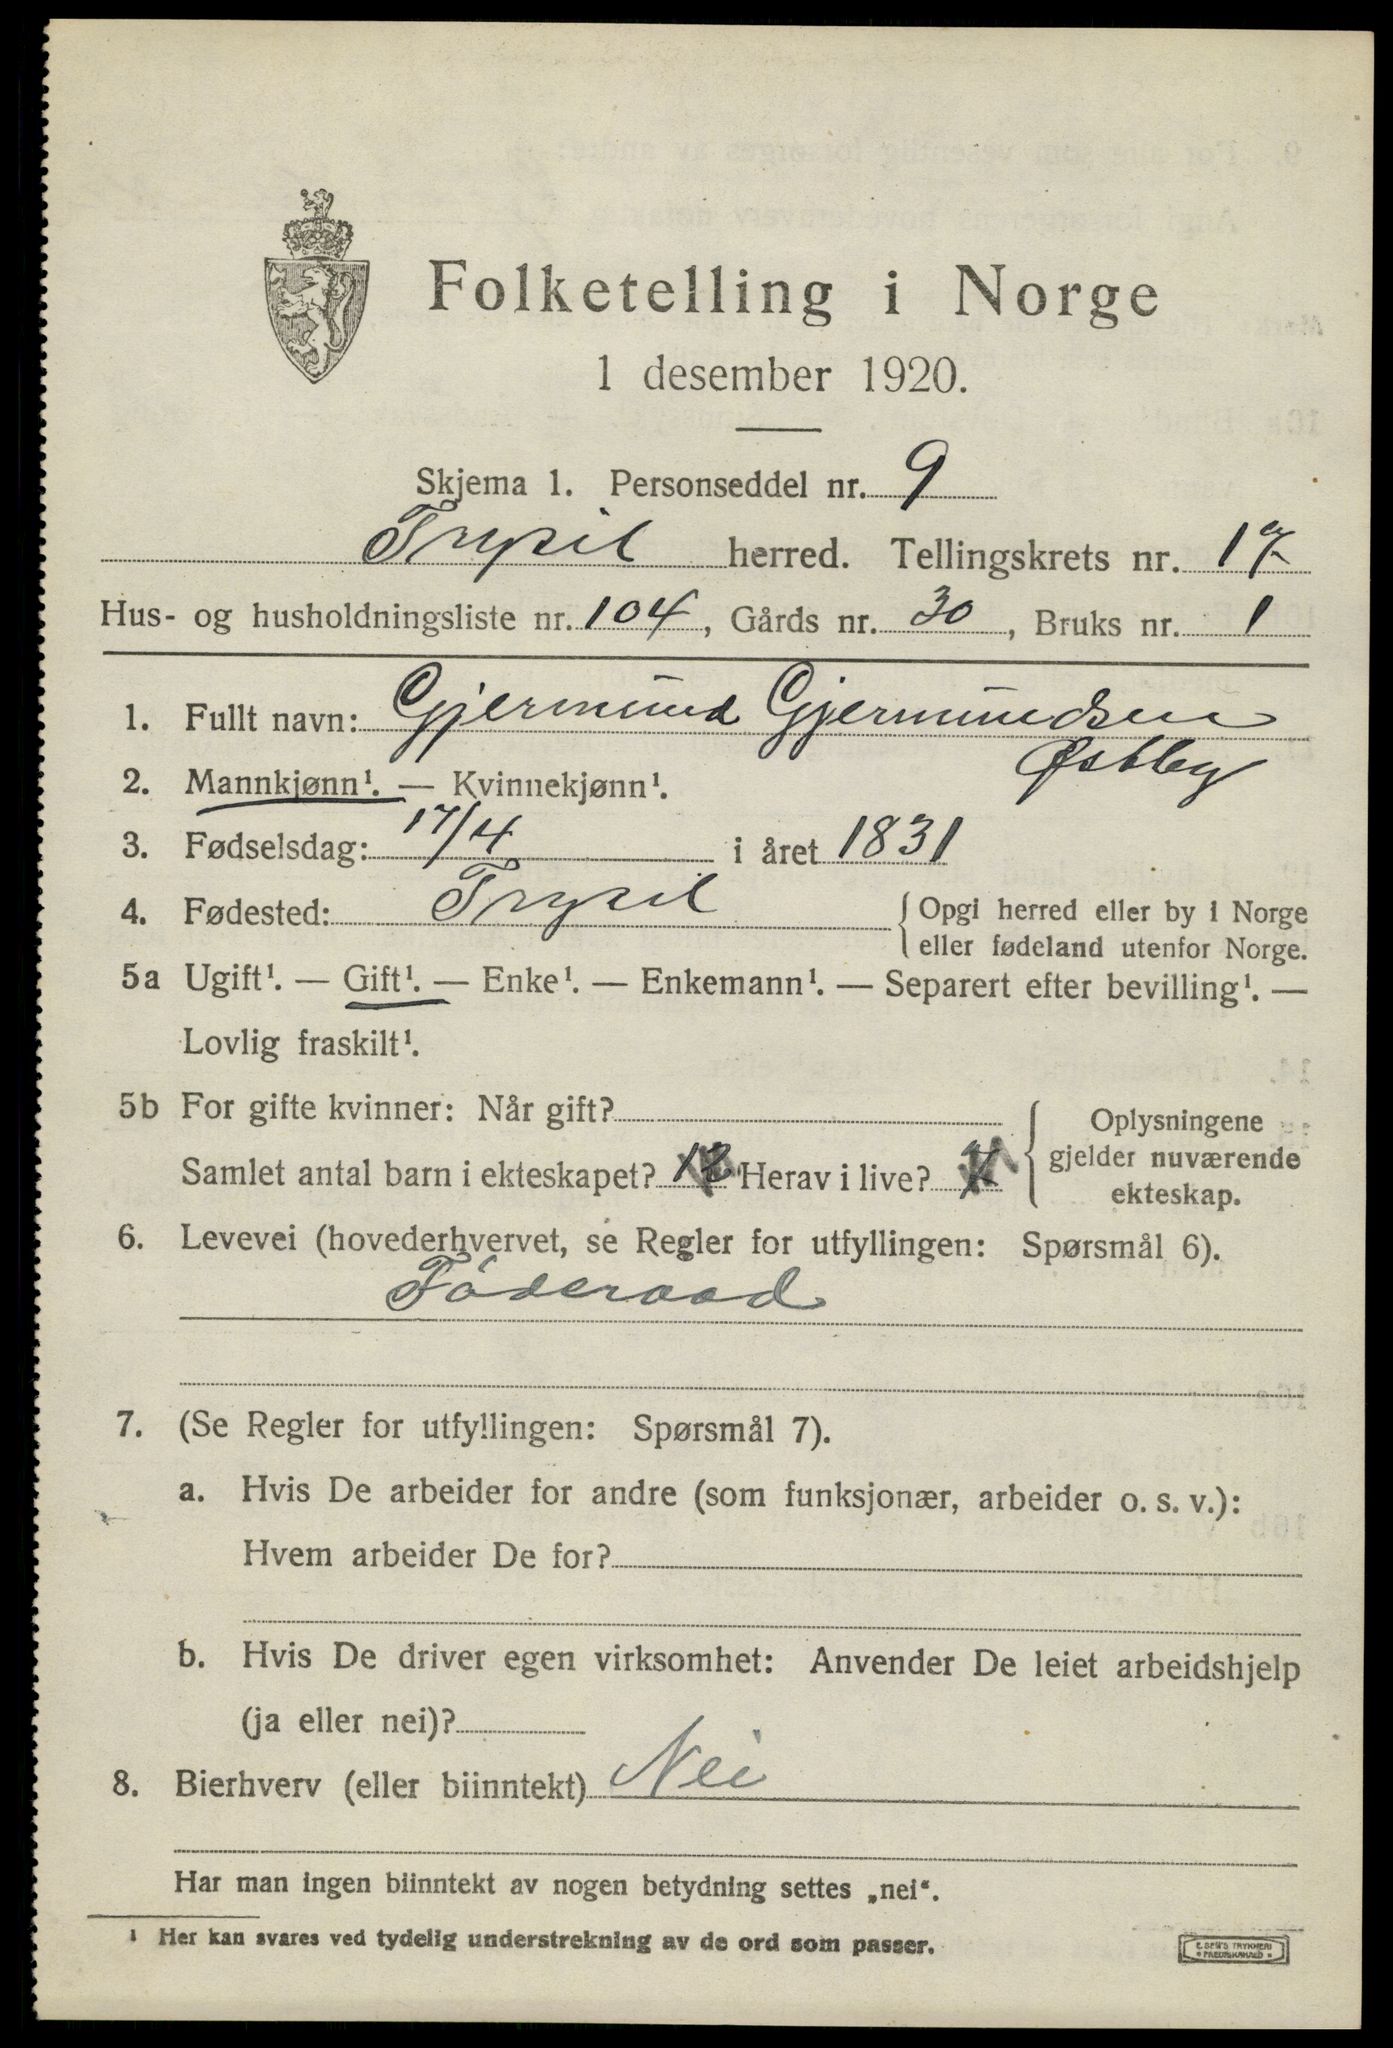 Folketelling i Norge
1 desember 1920.
Skjema 1. Personseddel nr. 9
Trysil herred. Tellingskrets nr. 17
Hus- og husholdningsliste nr. 104, Gårds nr. 30, Bruks nr. 1
1. Fullt navn: Gjermund Gjermundsen
Østby
2. Mannkjønn¹. — Kvinnekjønn¹.
3. Fødselsdag: 17/4 i året 1831
4. Fødested: Trysil { Opgi herred eller by i Norge
eller fødeland utenfor Norge.
5a Ugift¹. — Gift¹. — Enke¹. — Enkemann¹. — Separert efter bevilling¹. —
Lovlig fraskilt¹.
5b For gifte kvinner: Når gift?
Samlet antal barn i ekteskapet? 12 Herav i live?
Oplysningene
gjelder nuværende
ekteskap.
6. Levevei (hovederhvervet, se Regler for utfyllingen: Spørsmål 6).
Föderaad
7. (Se Regler for utfyllingen: Spørsmål 7).
a. Hvis De arbeider for andre (som funksjonær, arbeider o. s. v.):
Hvem arbeider De for?
b. Hvis De driver egen virksomhet: Anvender De leiet arbeidshjelp
(ja eller nei)?
8. Bierhverv (eller biinntekt) Nei
Har man ingen biinntekt av nogen betydning settes „nei“.
¹ Her kan svares ved tydelig understrekning av de ord som passer.